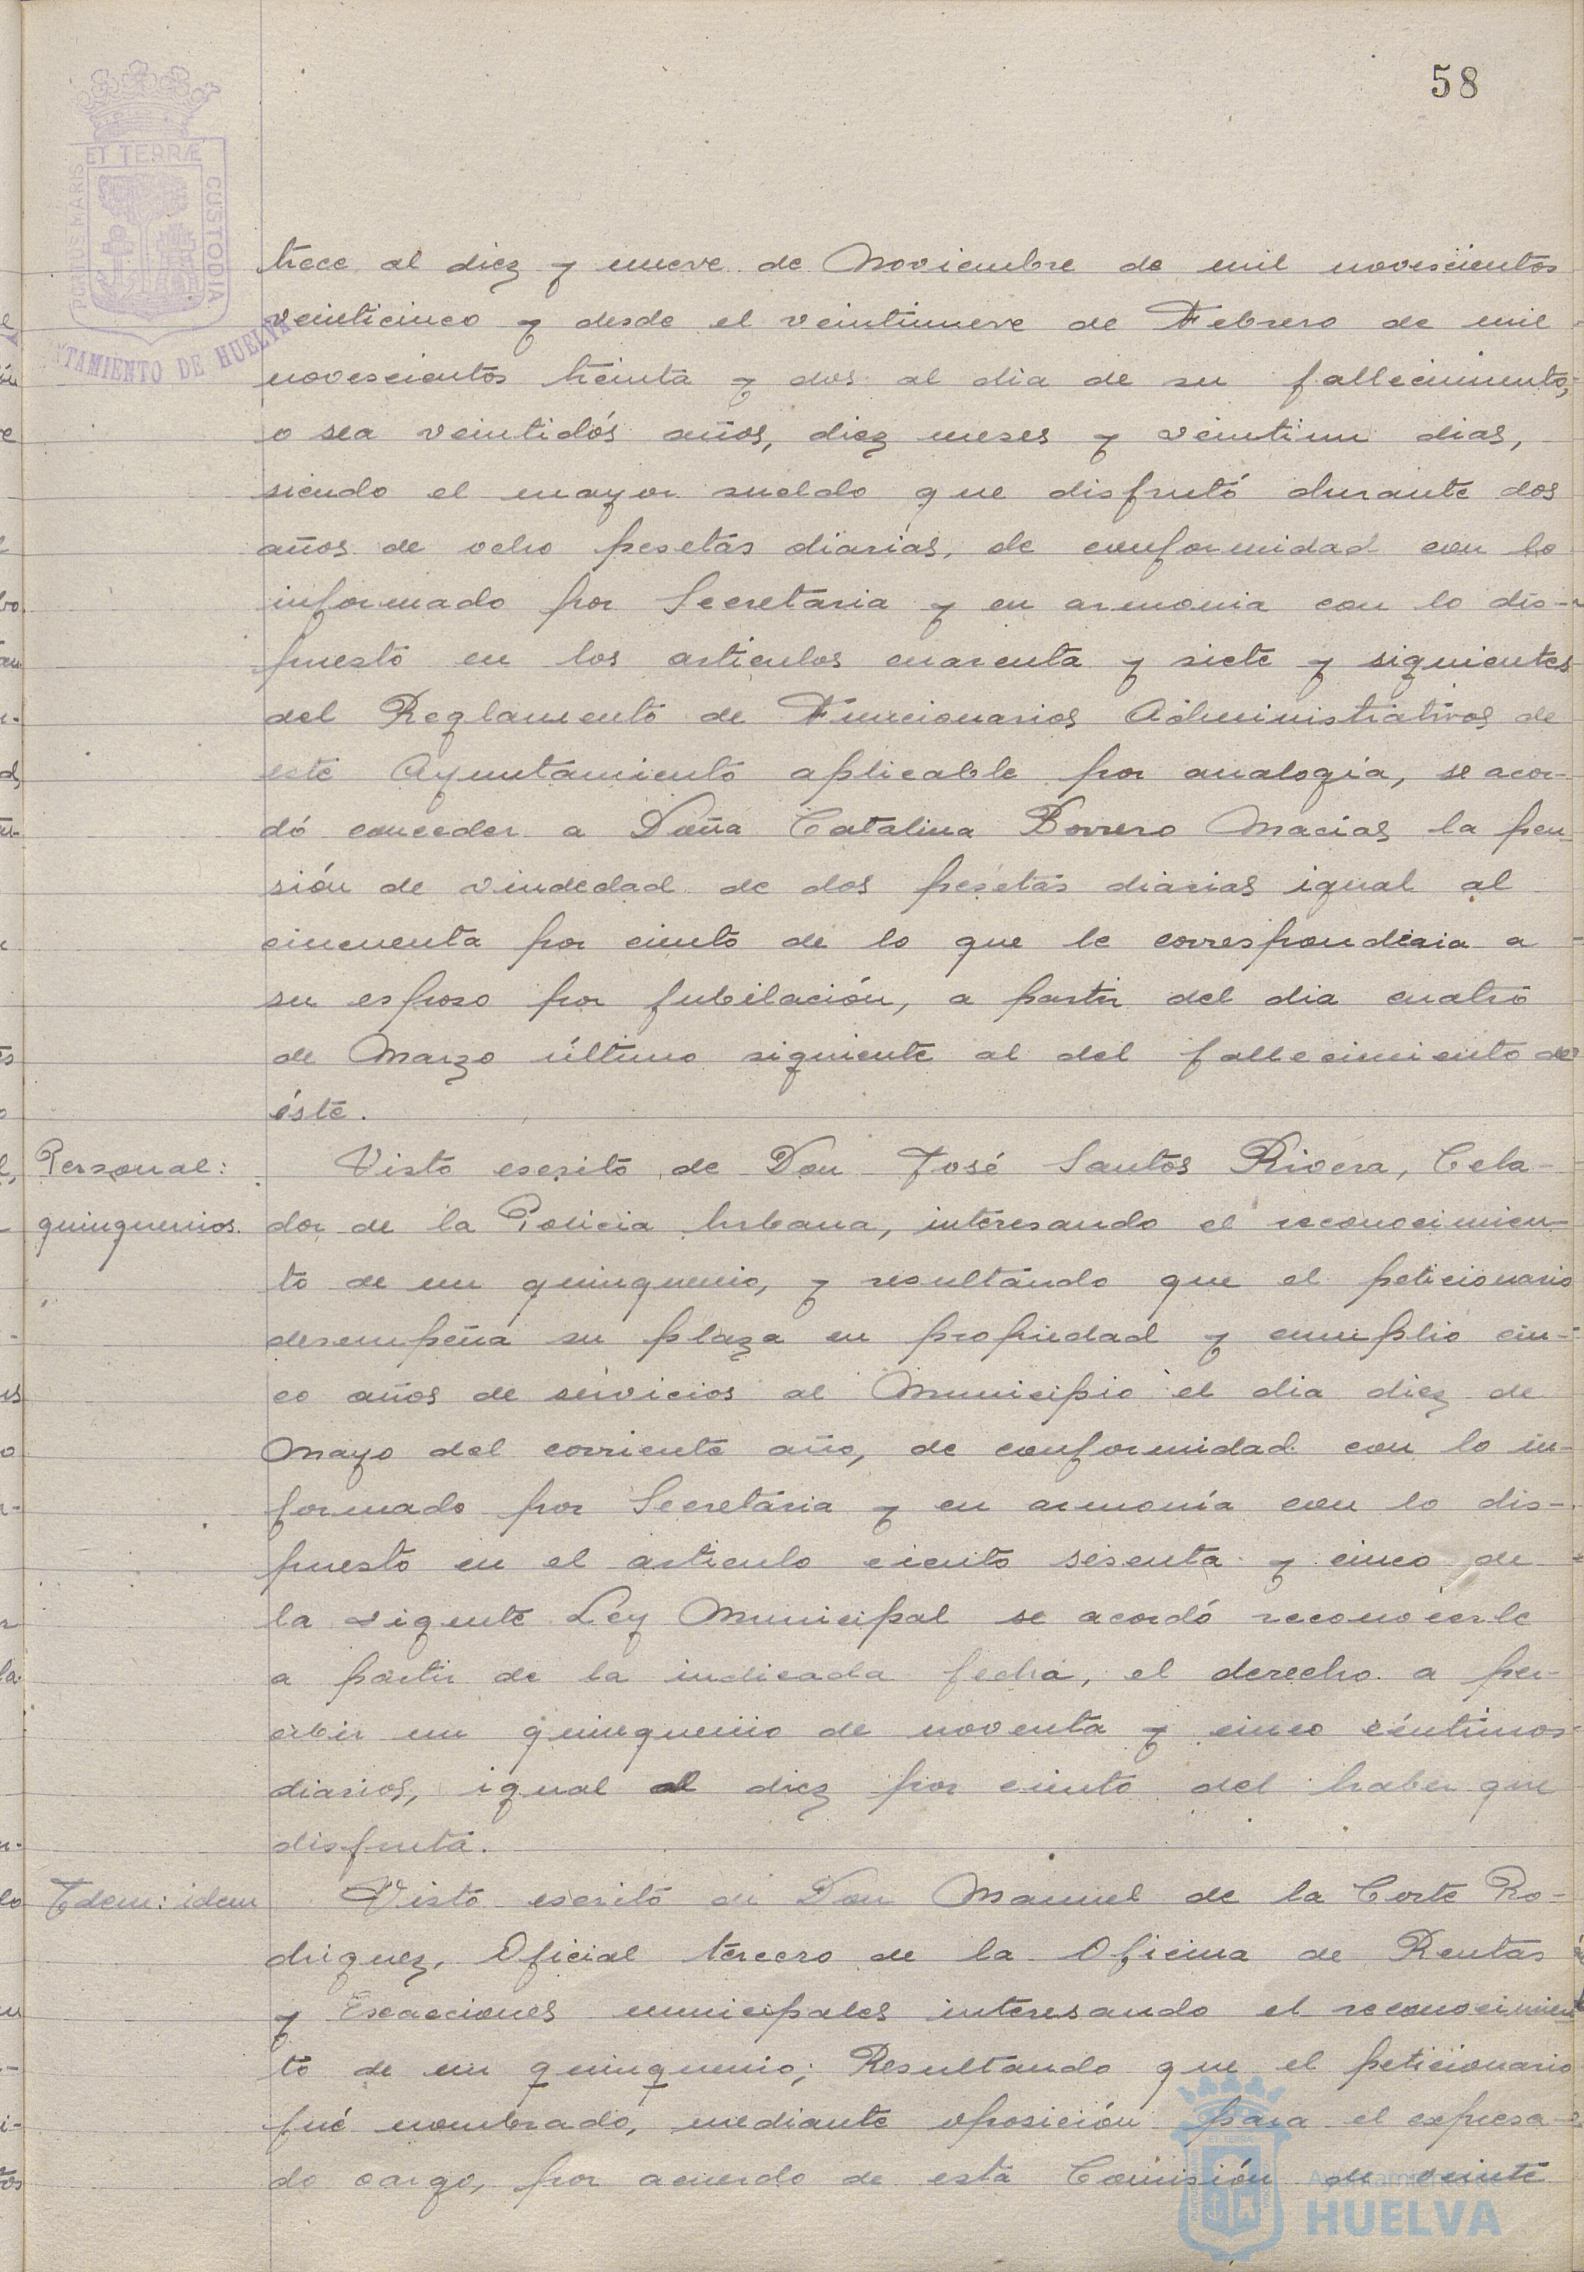 58
ET TERRÆ
PORTUS MARIS
CUSTODIA
TAMIENTO DE HUELVA
trece al diez y nueve de Noviembre de mil novescientos
veinticinco y desde el veintinueve de Febrero de mil
novescientos treinta y dos al dia de su fallecimiento,
o sea veintidós años, diez meses y veintiun dias,
siendo el mayor sueldo que disfrutó durante dos
años de ocho pesetas diarias, de conformidad con lo
informado por Secretaria y en armonia con lo dis-
puesto en los articulos cuarenta y siete y siguientes
del Reglamento de Funcionarios Administrativos de
este Ayuntamiento aplicable por analogia, se acor-
dó conceder a Doña Catalina Borrero Macias la pen-
sión de viudedad de dos pesetas diarias igual al
cincuenta por ciento de lo que le corresponderia a
su esposo por jubilación, a partir del dia cuatro
de Marzo último siguiente al del fallecimiento de
éste.
Personal: Visto escrito de Don José Santos Rivera, Cela-
quinquenios. dor de la Policia Urbana, interesando el reconocimien-
to de un quinquenio, y resultando que el peticionario
desempeña su plaza en propiedad y cumplio cin-
co años de servicios al Municipio el dia diez de
Mayo del corriente año, de conformidad con lo in-
formado por Secretaria y en armonía con lo dis-
puesto en el articulo ciento sesenta y cinco de
la vigente Ley Municipal se acordó reconocerle
a partir de la indicada fecha, el derecho a per-
cibir un quinquenio de noventa y cinco céntimos
diarios, igual al diez por ciento del haber que
disfruta.
Idem: idem Visto escrito de Don Manuel de la Corte Ro-
driguez, Oficial tercero de la Oficina de Rentas
y Exacciones municipales interesando el reconocimien
to de un quinquenio; Resultando que el peticionario
fué nombrado, mediante oposición para el expresa-
do cargo, por acuerdo de esta Comisión de veinte
Ayuntamiento de
HUELVA